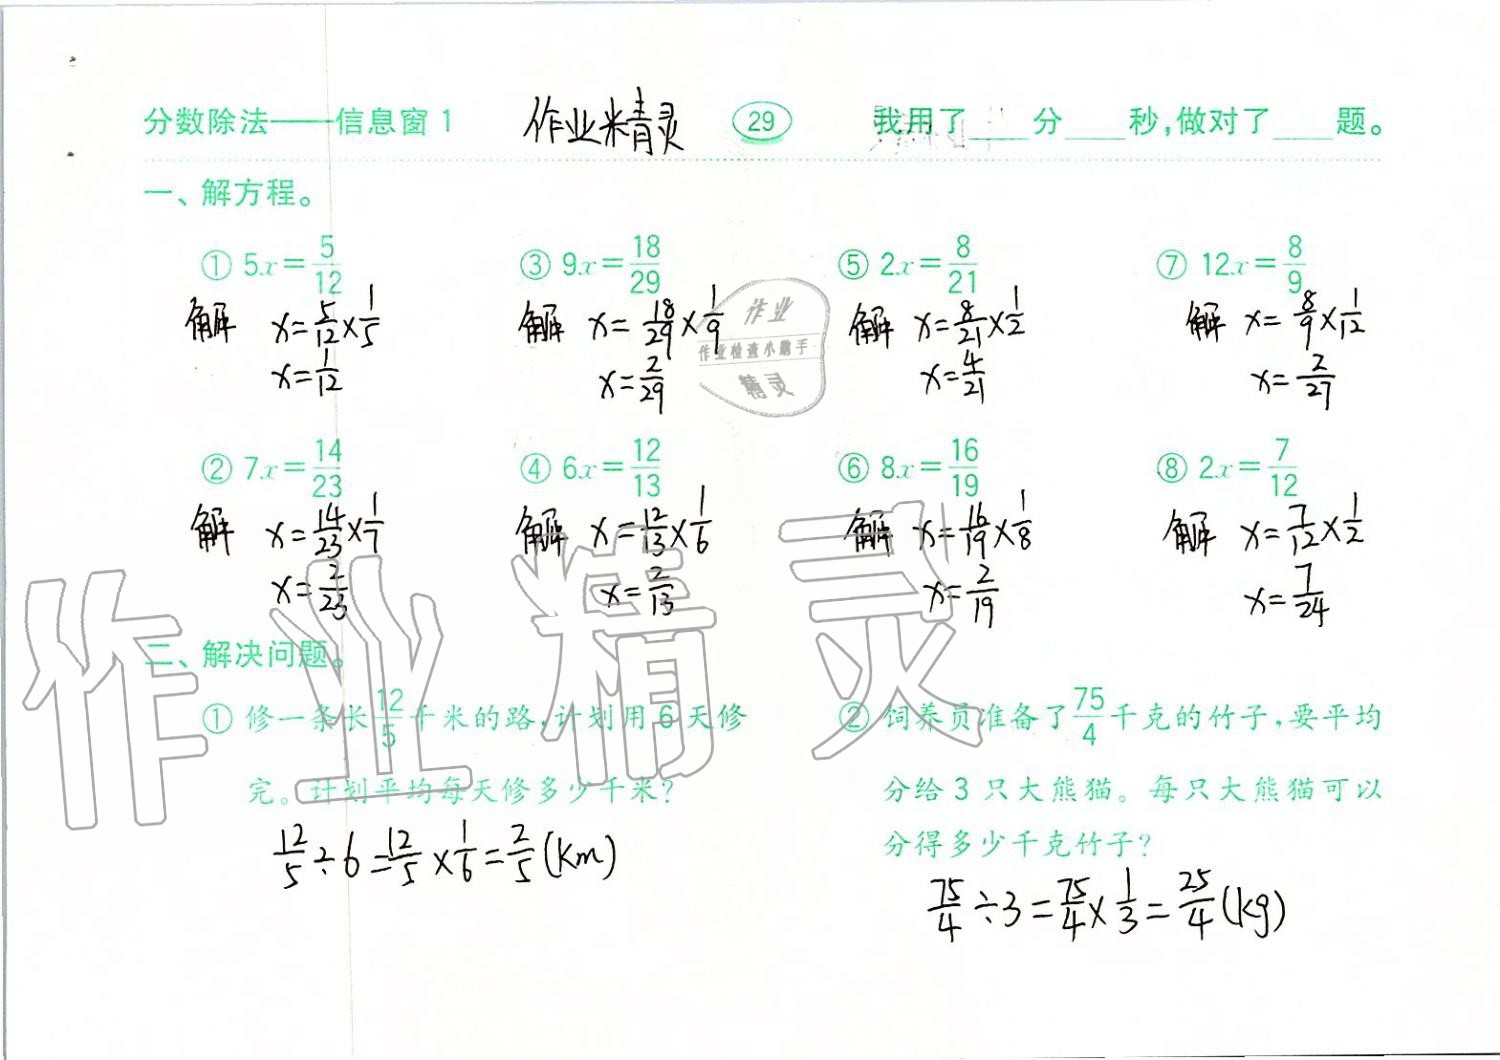 分数除法——信息窗1 作业精灵 29 我用了____分____秒,做对了____题。
一、解方程。
① 5x=5/12 ③ 9x=18/29 ⑤ 2x=8/21 ⑦ 12x=8/9
解 x=5/12×1/5 解 x=18/29×1/9 解 x=8/21×1/2 解 x=8/9×1/12
x=1/12 x=2/29 x=4/21 x=2/27
作业
作业检查小帮手
精灵
② 7x=14/23 ④ 6x=12/13 ⑥ 8x=16/19 ⑧ 2x=7/12
解 x=14/23×1/7 解 x=12/13×1/6 解 x=16/19×1/8 解 x=7/12×1/2
x=2/23 x=2/13 x=2/19 x=7/24
作业精灵
二、解决问题。
① 修一条长12/5千米的路,计划用6天修
完。计划平均每天修多少千米?
12/5÷6=12/5×1/6=2/5(km)
② 饲养员准备了75/4千克的竹子,要平均
分给3只大熊猫。每只大熊猫可以
分得多少千克竹子?
75/4÷3=75/4×1/3=25/4(kg)